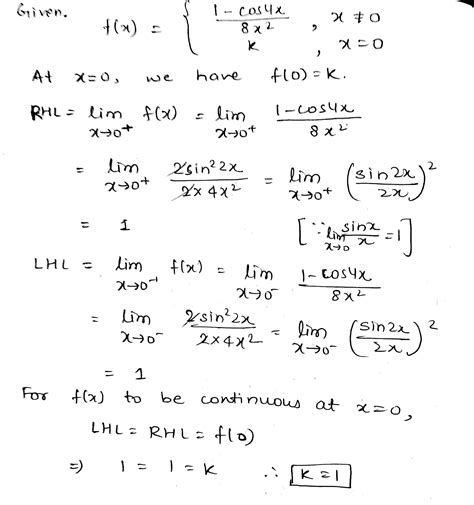 Given. f(x) = { 1 - cos4x / 8x² , x ≠ 0
k , x = 0
At x=0, we have f(0) = K.
RHL = lim x→0⁺ f(x) = lim x→0⁺ 1-cos4x / 8x²
= lim x→0⁺ 2sin²2x / 2×4x² = lim x→0⁺ (sin2x / 2x)²
= 1 [∵ lim x→0 sinx / x = 1]
LHL = lim x→0⁻ f(x) = lim x→0⁻ 1-cos4x / 8x²
= lim x→0⁻ 2sin²2x / 2×4x² = lim x→0⁻ (sin2x / 2x)²
= 1
For f(x) to be continuous at x=0,
LHL = RHL = f(0)
⇒ 1 = 1 = K ∴ K = 1